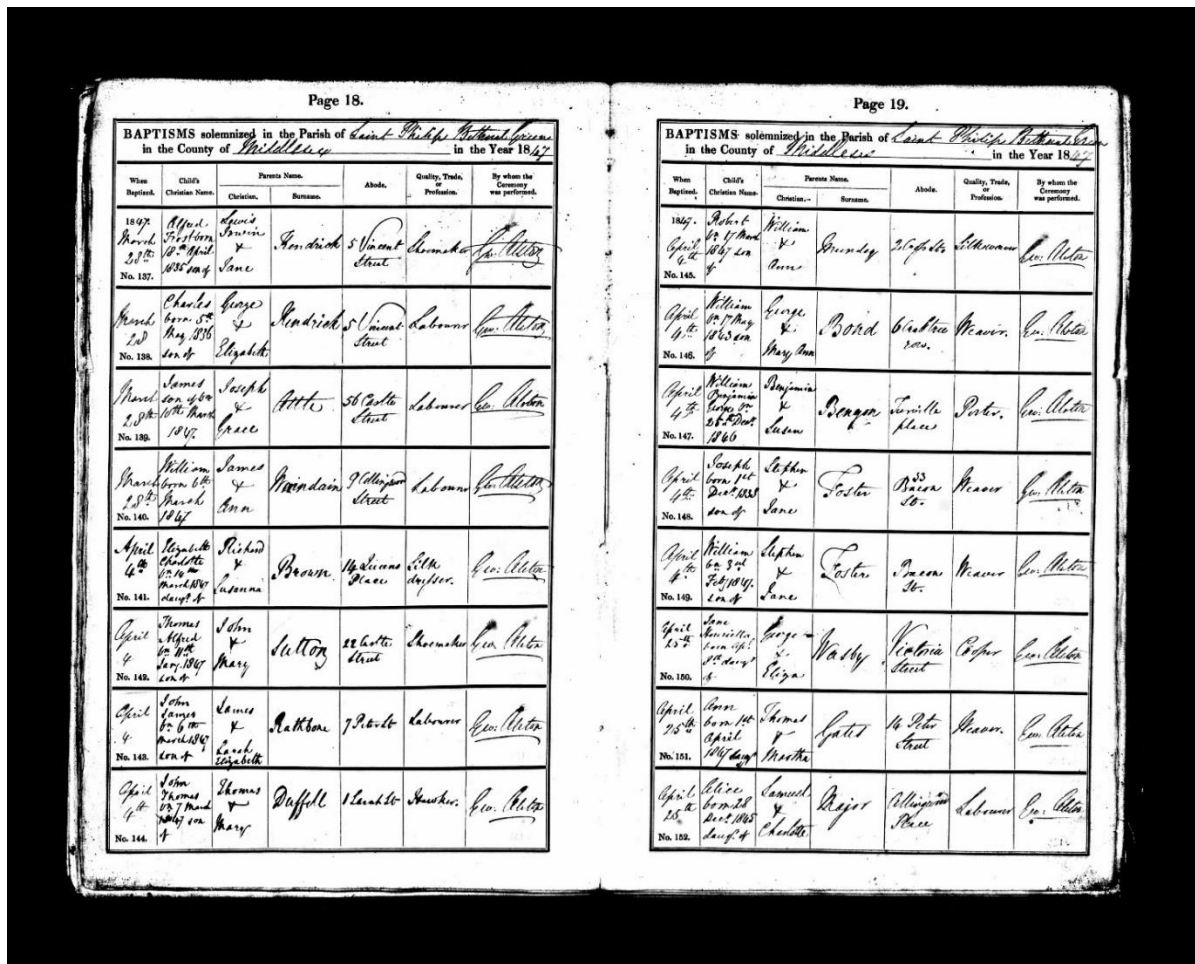 Page 18.
BAPTISMS solemnized in the Parish of Saint Philips Bethnal Green
in the County of Middlesex in the Year 1847
When Baptized.
Child's Christian Name.
Parents Name.
Christian.
Surname.
Abode.
Quality, Trade, or Profession.
By whom the Ceremony was performed.
1847. March 28th No. 137.
Alfred Frost born 18th April 1835 son of
Lewis Irwin & Jane
Kendrick
5 Vincent Street
Shoemaker
Geo. Alston
March 28 No. 138.
Charles born 5th May 1836 son of
George & Elizabeth
Kendrick
5 Vincent Street
Labourer
Geo. Alston
March 28th No. 139.
James son of bn 10th March 1847.
Joseph & Grace
56 Castle Street
Labourer
Geo. Alston
March 28th No. 140.
William born 6th March 1847
James & Ann
9 Collingwood Street
Labourer
Geo. Alston
April 4th No. 141.
Elizabeth Charlotte bn March 1847 daugr. of
Richard & Susanna
Brown
14 Queens Place
Silk dresser.
Geo: Alston
April 4 No. 142.
Thomas Alfred bn 11th Jany. 1847 son of
John & Mary
Sutton
22 Castle Street
Shoemaker
Geo. Alston
April 4 No. 143.
John James bn 6th March 1847 son of
James & Sarah Elizabeth
Rathbone
7 Peter St
Labourer
Geo. Alston
April 4 No. 144.
John Thomas bn 7 March 1847 son of
Thomas & Mary
Duffell
1 Sarah St
Hawker.
Geo. Alston
Page 19.
BAPTISMS solemnized in the Parish of Saint Philips Bethnal Green
in the County of Middlesex in the Year 1847
When Baptized.
Child's Christian Name.
Parents Name.
Christian.
Surname.
Abode.
Quality, Trade, or Profession.
By whom the Ceremony was performed.
1847. April 4th No. 145.
Robert bn 17 March 1847 son of
William & Ann
Munday
Silkweaver
Geo. Alston
April 4th No. 146.
William bn 17 May 1843 son of
George & Mary Ann
Bond
6 Crabtree row.
Weaver.
Geo. Alston
April 4th No. 147.
William Benjamin George bn 25th Decr. 1846
Benjamin & Susan
Turville place
Porter.
Geo. Alston
April 4th No. 148.
Joseph born 1st Decr. 1838 son of
Stephen & Jane
Foster
33 Bacon St.
Weaver
Geo. Alston
April 4th No. 149.
William bn 3rd Feby 1847. son of
Stephen & Jane
Foster
Bacon St.
Weaver
Geo. Alston
April 25th No. 150.
Jane Henrietta born Apl. daugr of
George & Eliza
Wasby
Victoria Street
Cooper
Geo. Alston
April 25th No. 151.
Ann born 1st April 1847 daugr
Thomas & Martha
Gates
14 Peter Street
Weaver.
Geo. Alston
April 25th No. 152.
Alice born 28 Decr. 1845 daugr. of
Samuel & Charlotte
Major
Place
Labourer
Geo. Alston